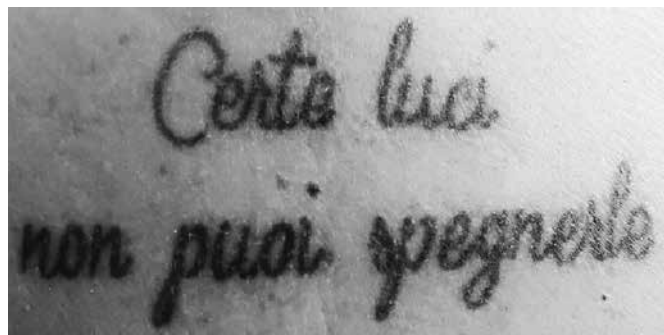 Certe luci
non puoi spegnerle